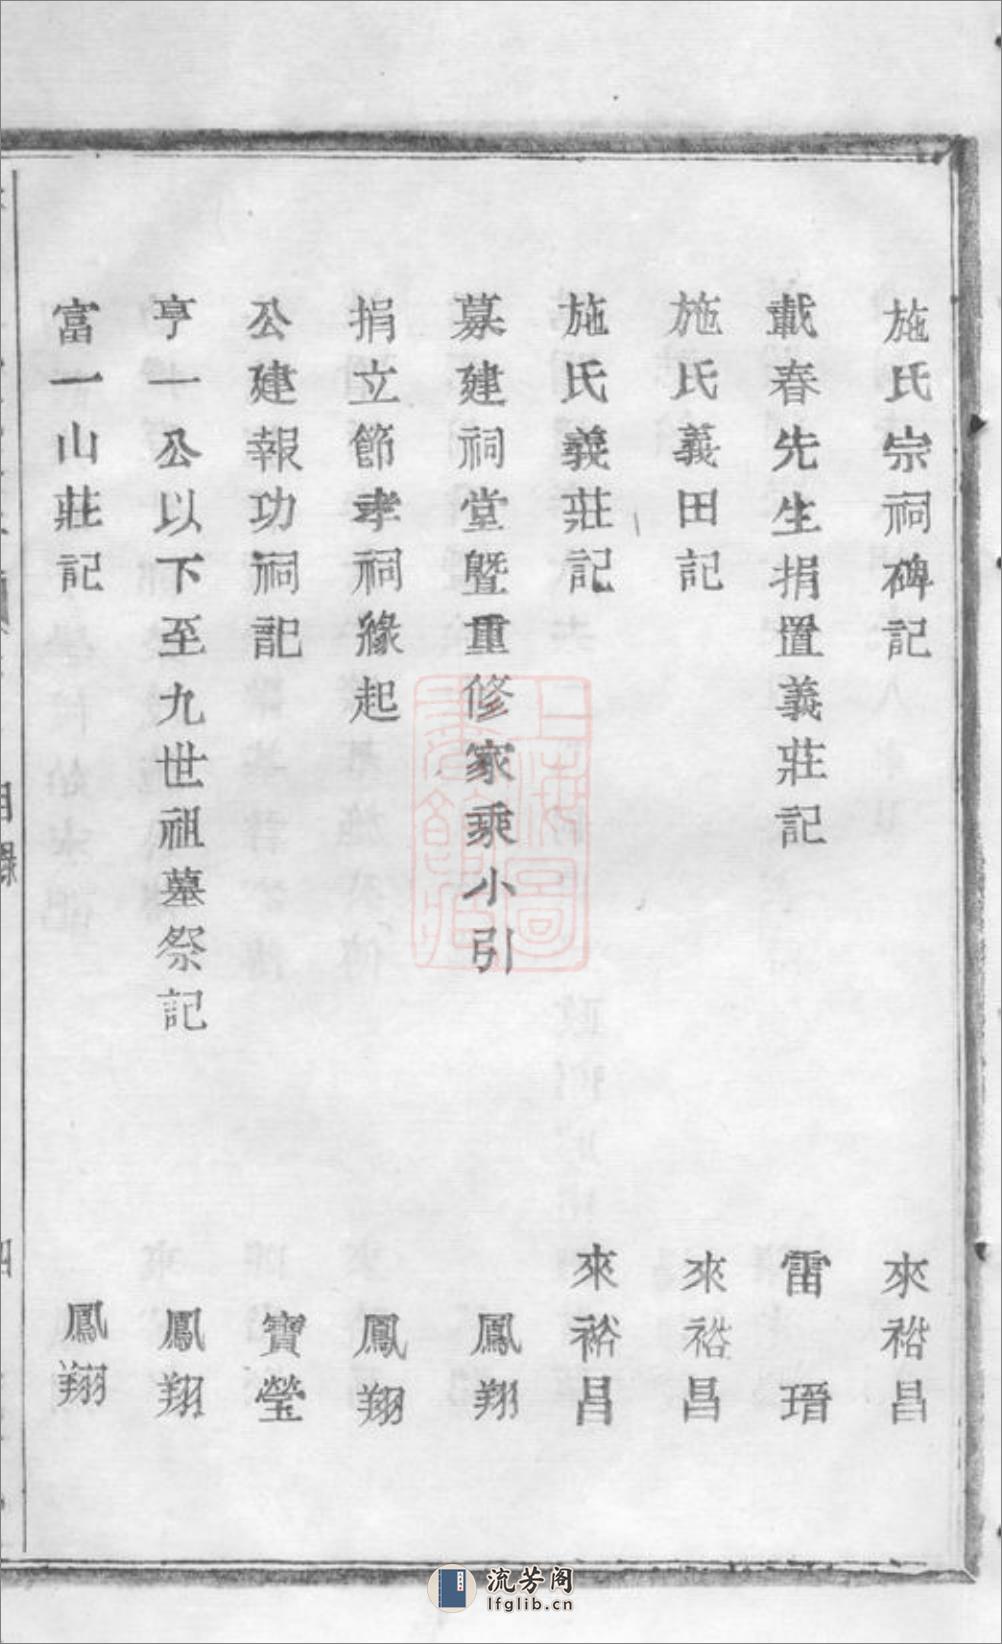 施氏宗祠碑記 來裕昌
載春先生捐置義莊記 雷瑨
施氏義田記 來裕昌
施氏義莊記 來裕昌
募建祠堂暨重修家乘小引 鳳翔
捐立節孝祠緣起 鳳翔
公建報功祠記 寶瑩
亨一公以下至九世祖墓祭記 鳳翔
富一山莊記 鳳翔
目錄
四
上海圖書館藏
流芳阁
lfglib.cn